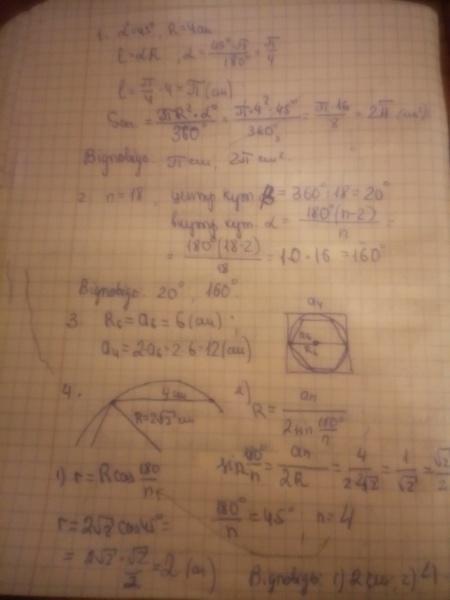 1. α=45°, R=4см
l=αR, α= 45°·π/180° = π/4
l= π/4 ·4=π(см)
Sсек = πR²·α°/360° = π·4²·45°/360° = π·16/8 = 2π (см²)
Відповідь: π см, 2π см².
2. n=18, центр. кут. β=360°:18=20°
внутр. кут. α= 180°(n-2)/n =
= 180°(18-2)/18 = 10·16=160°
Відповідь: 20°, 160°.
3. R₆=a₆=6(см);
a₄=2·a₆=2·6=12(см)
a₄
R₆
4.
4см
R=2√2 см
2) R= aₙ/2sin 180°/n
1) r=Rcos 180/n
sin 180°/n = aₙ/2R = 4/2·2√2 = 1/√2 = √2/2
r=2√2 cos45°=
180°/n =45°, n=4
= 2√2·√2/2 =2 (см)
Відповідь: 1) 2(см), 2) 4